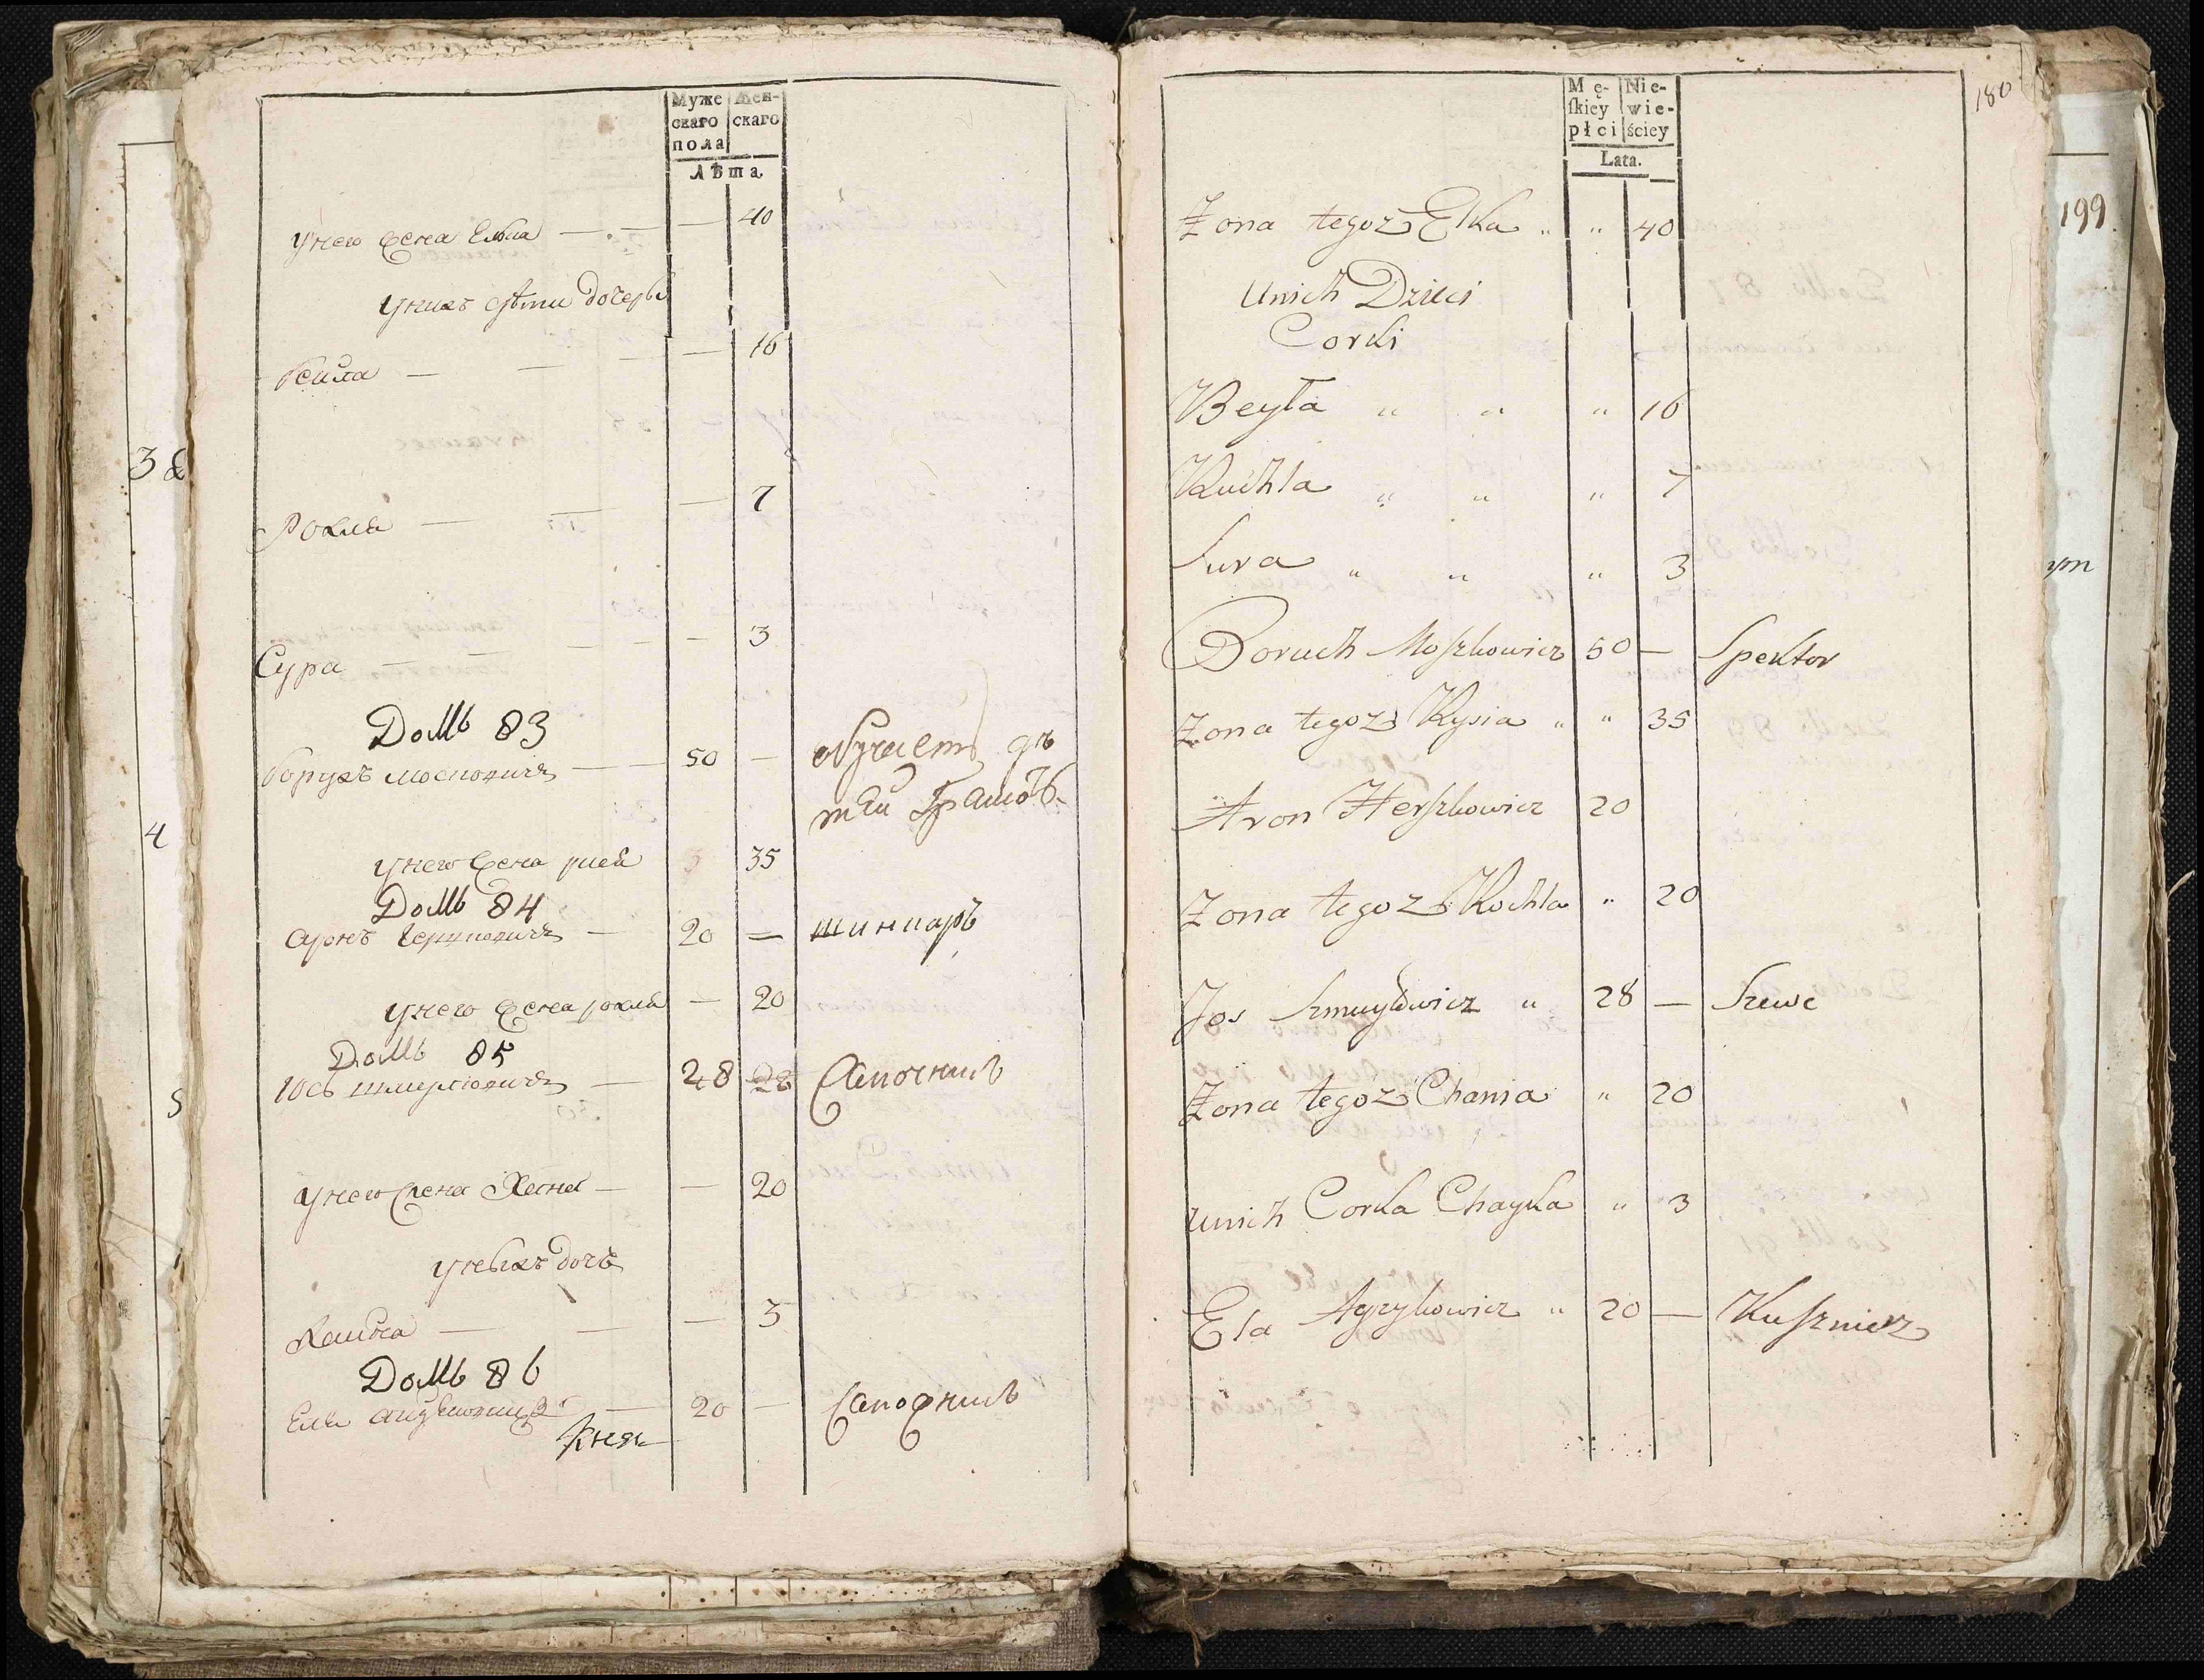 Муже
скаго
пола
Жен-
скаго
Лѣта
у него жена Елка — — — 40
у нихъ дѣти дочери
Бейла — — — 16
Рохля — — — 7
Сура — — — 3
Домъ 83
Борухъ Московичъ — — 50 — обучаетъ дѣ
тей грамотѣ
у него жена 35
Домъ 84
Аронъ Гершковичъ — 20 — шинкаръ
у него жена рохля — 20
Домъ 85
Іось — 28 28 Сапожникъ
у него жена Хания — — 20
у нихъ дочь
Хайка — — — 3
Домъ 86
Еля — 20 — Сапожникъ
3
4
5
180
199
ym
Mę-
ſkiey
płci
Nie-
wie-
ściey
Lata.
Zona tegoz Elka „ „ 40
Unich Dzieci
Corki
Beyła „ „ „ 16
Ruchla „ „ „ 7
Sura „ „ „ 3
Boruch Moſzkowicz 50 — Spektor
Zona tegoz Rysia „ „ 35
Aron Herſzkowicz 20
Zona tegoz Rochla „ 20
Jos Szmuyłowicz „ 28 — Szewc
Zona tegoz Chania „ 20
Unich Corka Chayka „ 3
Ela Ayzykowicz „ 20 — Kuſznierz